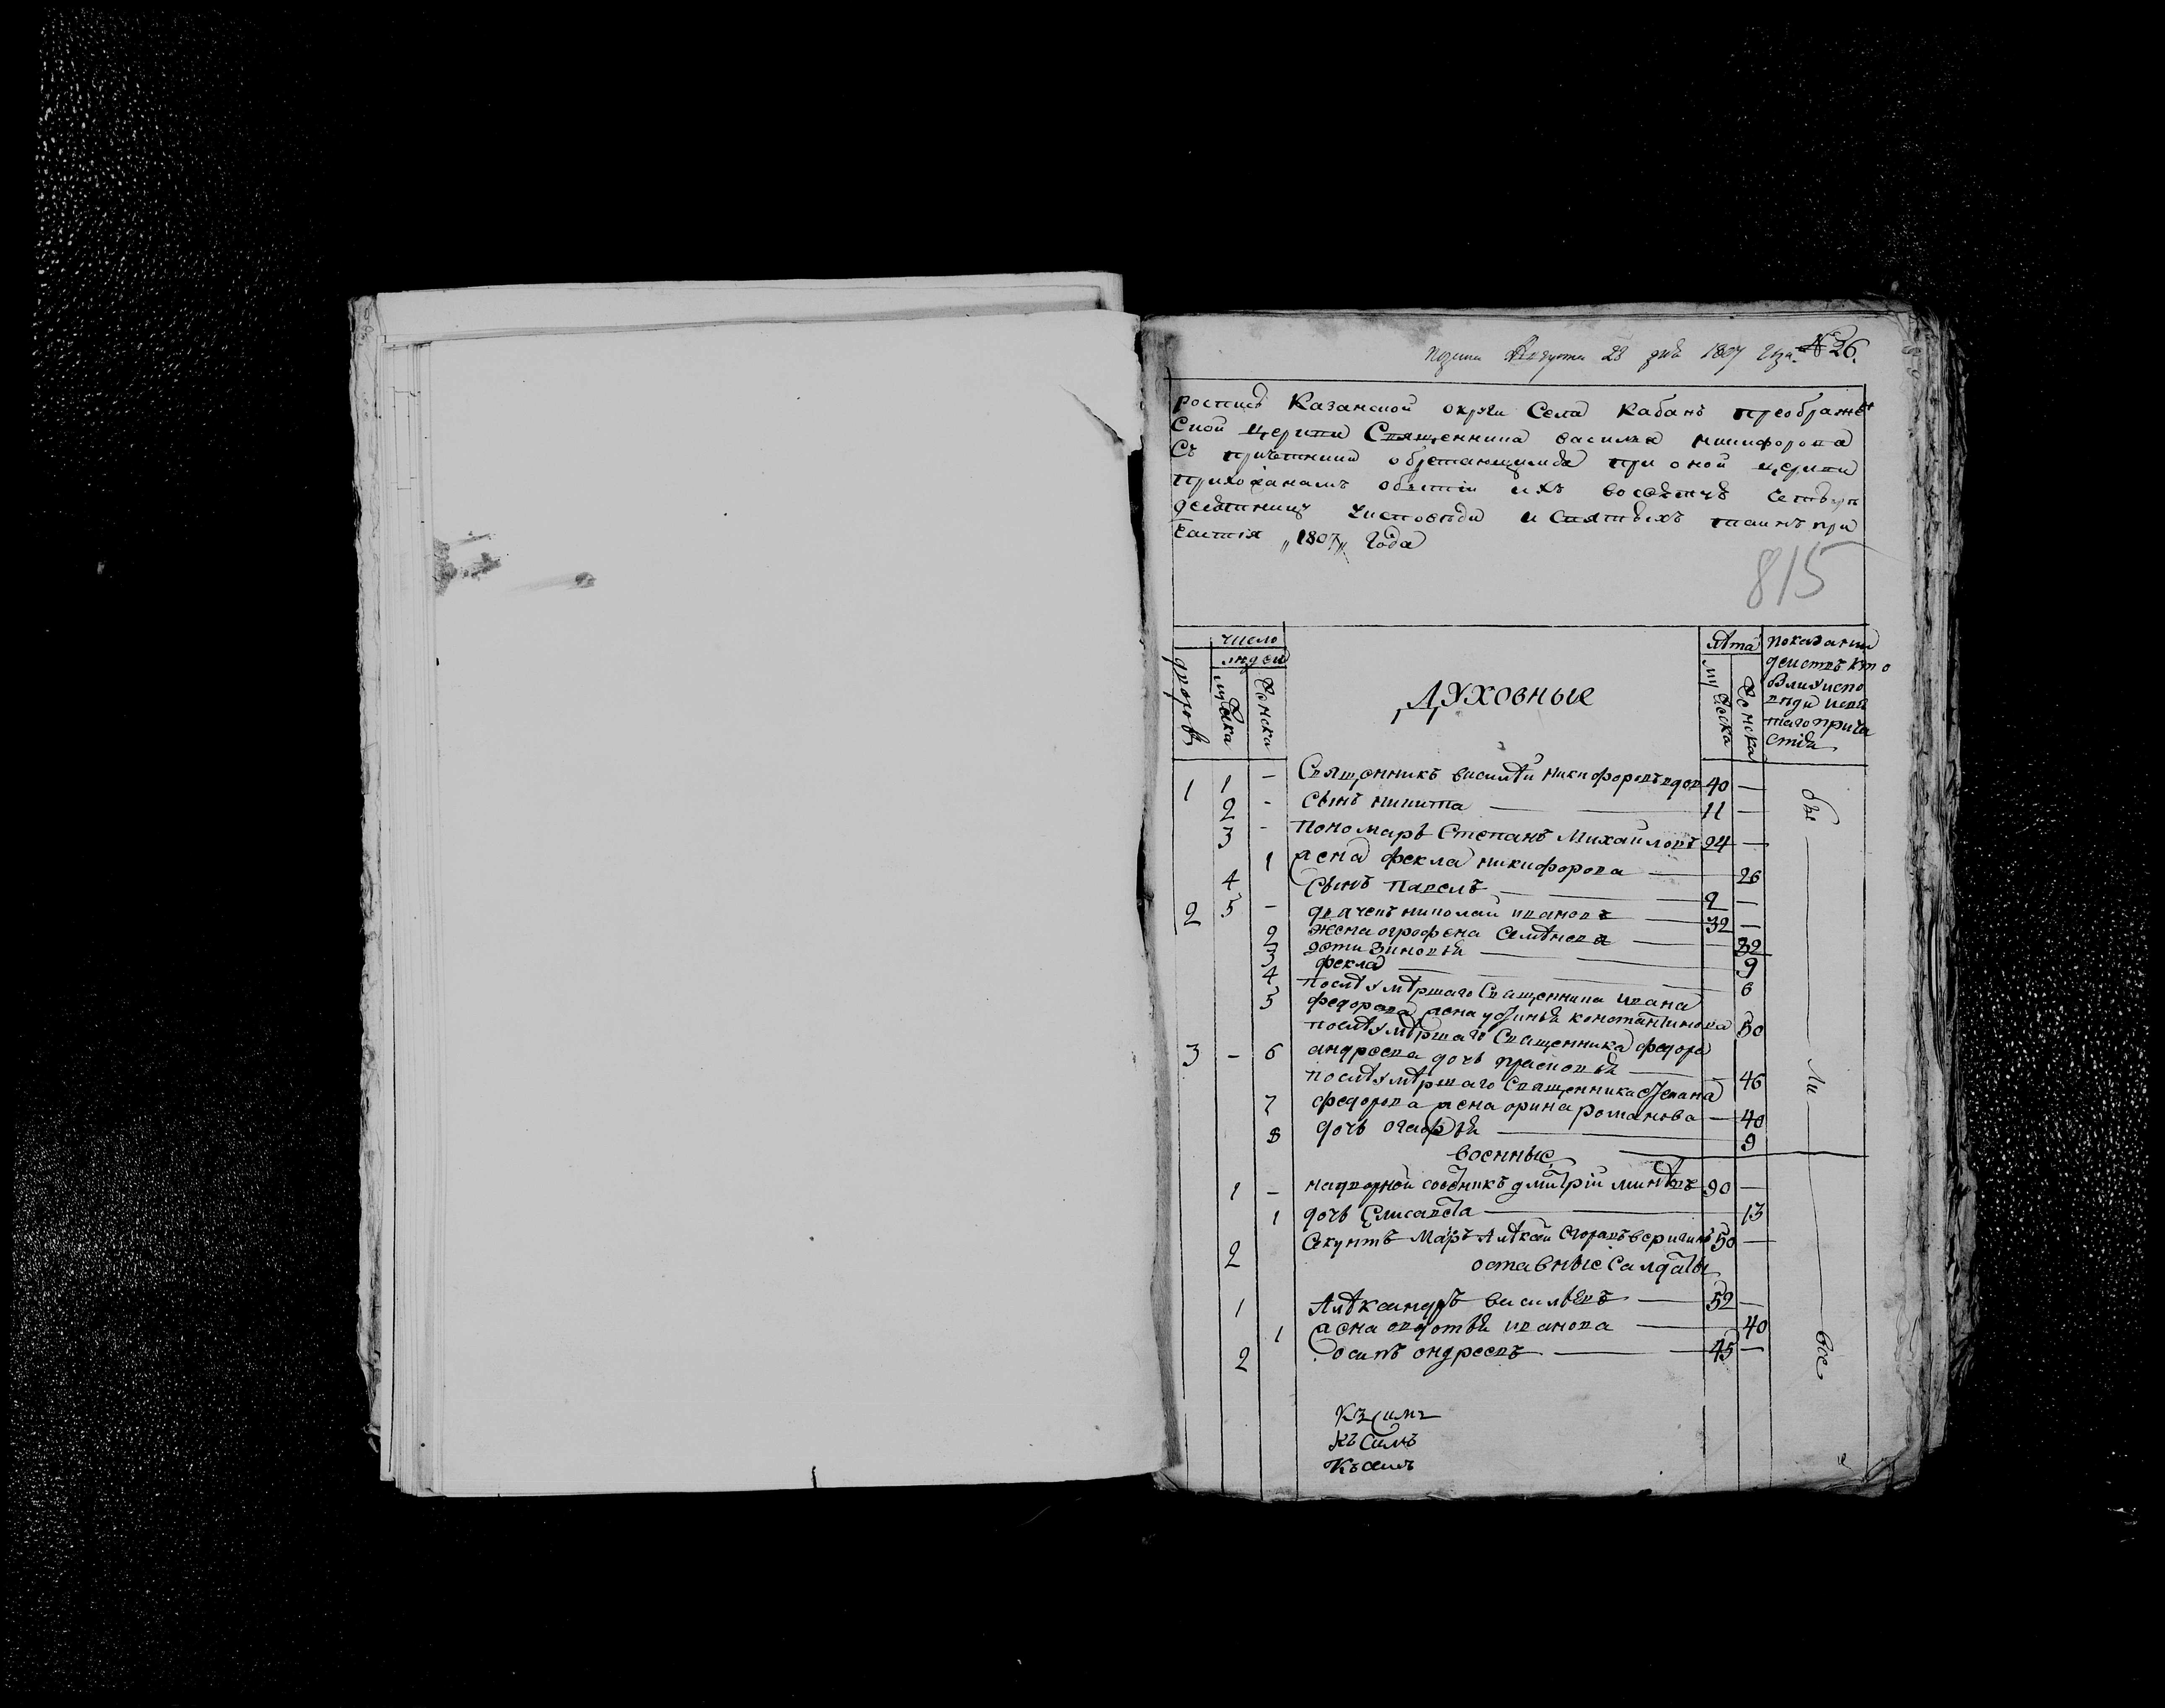 Августа 28 дня 1807 года № 26.
роспись Казанской округи Села Кабанъ преображен
ской церкви Священника василья никифорова
Съ причетники обретающимся при оной церкви
прихожанамъ
исповеди и святыхъ таинъ при
частія „1807„ Года
815
дворов
число
людей
мужеска
Женска
ДУХОВНЫЕ
лѣта
мужеска
Женска
показании
действъ кто
былъ у испо
веди и свя
таго прича
стия
1 1 – Священникъ василѣй никифоровъ вдов 40 –
2 – сынъ никита 11 –
3 – пономарь Степанъ Михаиловъ 24 –
1 жена фекла никифорова 26
4 сынъ павелъ 2 –
2 5 – дьячекъ николай ивановъ 32 –
2 жена огрофена семѣнова 32
3 дети зиновья 9
4 фекла 6
после умѣршаго Священника ивана
5 федорова жена устинья константинова 50
после умѣршаго Священника федора
3 – 6 андреева дочь прасковья 46
после умѣршаго Священника степана
7 федорова жена орина романова 40
8 дочь огафья 9
военные
1 – надворной советникъ дмитрій 90 –
1 дочь Елисавета 13
2 Секунтъ Маэръ Алѣксей Егоровъ веригинъ 50 –
оставные салдаты
1 Алѣксандръ васильевъ 52 –
1 жена овдотья иванова 40
2 осипъ ондреевъ 45 –
бы
ли
все
Къ симъ
Къ симъ
Къ симъ